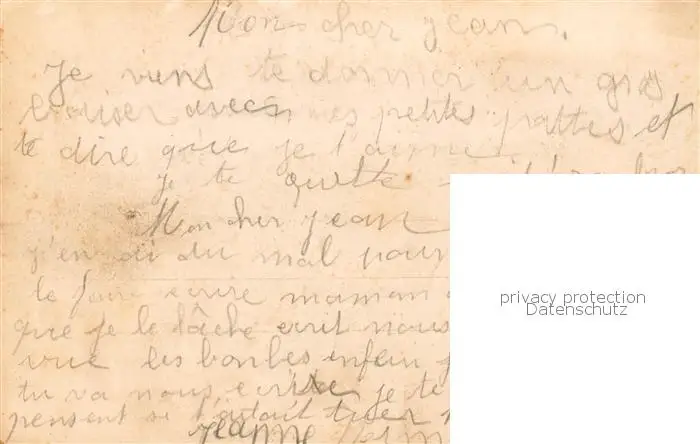 Mon cher jean.
Je viens te donner un gros
baiser avec mes petites pattes et
te dire que je t'aime.
je te quitte
Mon cher jean
j'en ai du mal pour
le faire ecrire maman
que je le lâche ecrit nous
vue les bonbes enfein
tu va nous ecrire je te
pensent si t'aitait tuer
jeanne
privacy protection
Datenschutz